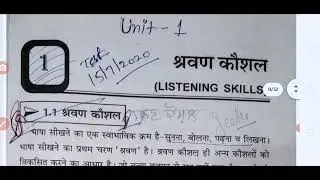 Unit - 1
1
Test
15/7/2020
श्रवण कौशल
(LISTENING SKILLS
9/32
1.1 श्रवण कौशल
भाषा सीखने का एक स्वाभाविक क्रम है- सुनना, बोलना, पढ़ना व लिखना।
भाषा सीखने का प्रथम चरण 'श्रवण' है। श्रवण कौशल ही अन्य कौशलों को
विकसित करने का आधार है।